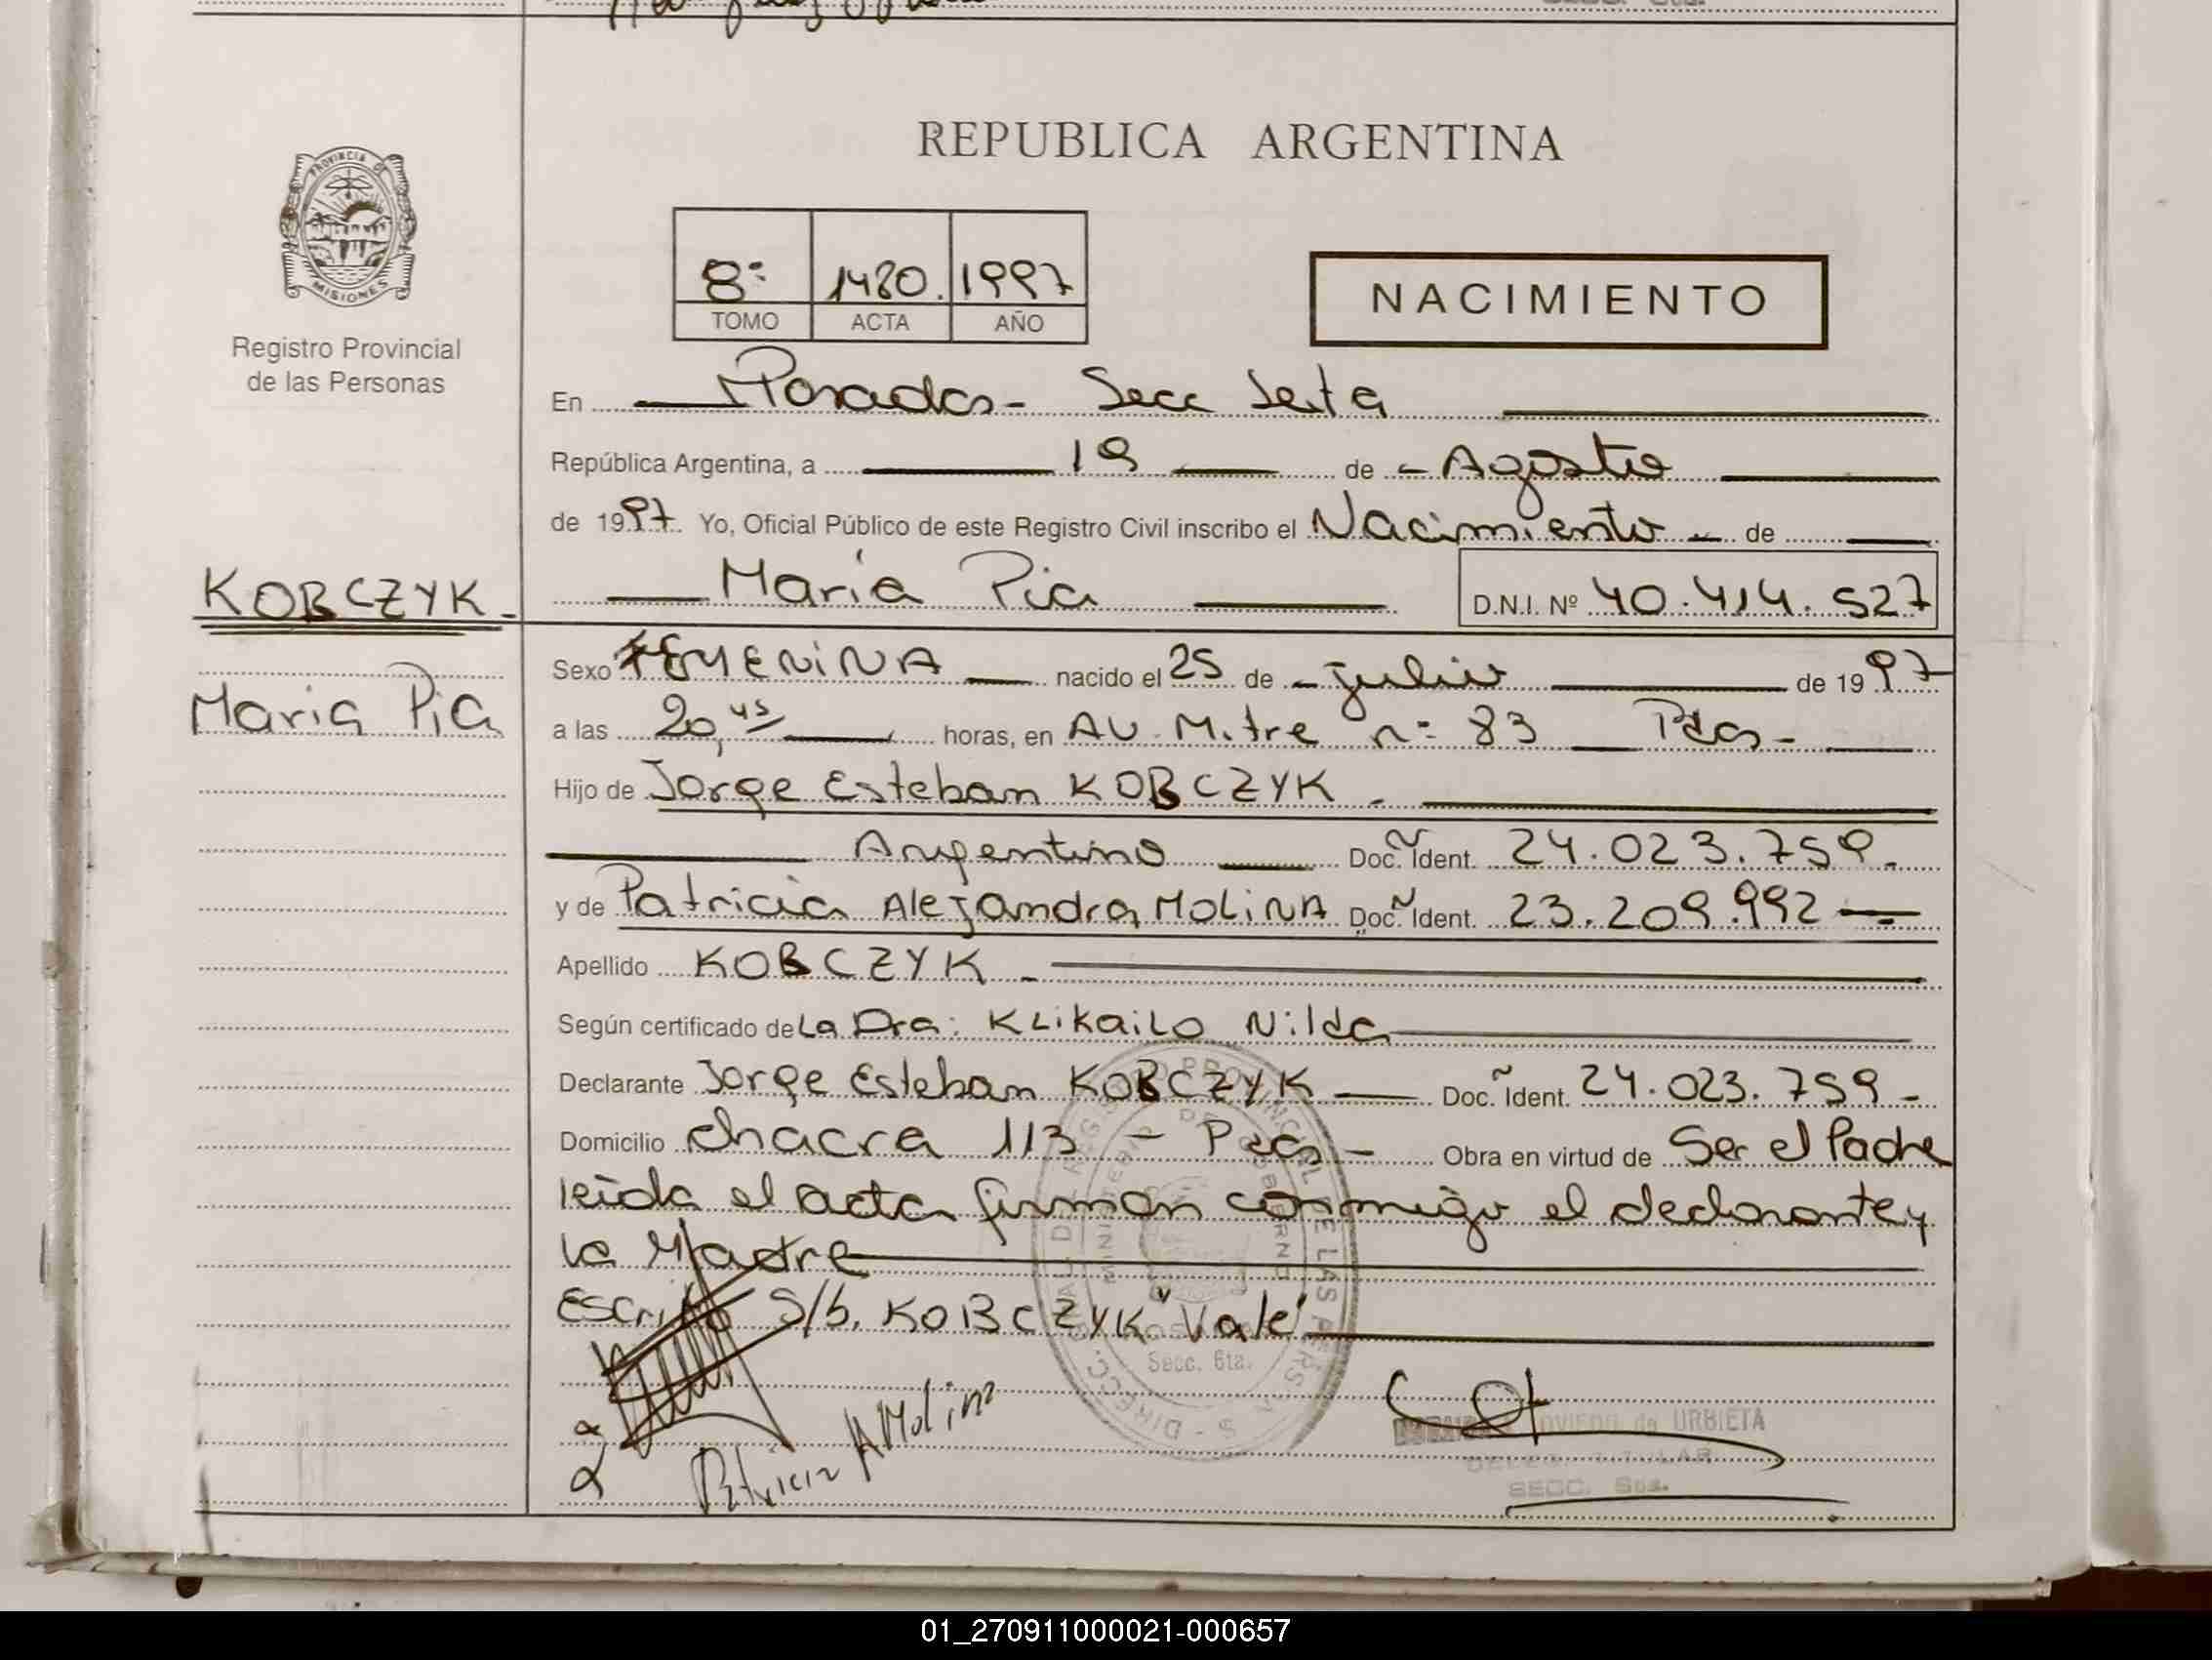 REPUBLICA ARGENTINA
PROVINCIA DE
MISIONES
Registro Provincial
de las Personas
8º 1480. 1997
TOMO ACTA AÑO
NACIMIENTO
En Posadas - Secc Sexta
República Argentina, a 19 de Agosto
de 1997 Yo, Oficial Público de este Registro Civil inscribo el Nacimiento de
María Pia D.N.I. Nº 40.414.527
KOBCZYK
Maria Pia
Sexo FEMENINA nacido el 25 de julio de 1997
a las 20,45 horas, en AV. Mitre nº 83 Pdas-
Hijo de Jorge Esteban KOBCZYK.
Argentino Doc. Ident. 24.023.759.
y de Patricia Alejandra MOLINA Doc. Ident. 23.209.992
Apellido KOBCZYK
Según certificado de La Dra: KLikaiLo Nilda
Declarante Jorge Esteban KOBCZYK Doc. Ident. 24.023.759-
Domicilio chacra 113 - Pdas - Obra en virtud de Ser el Padre
leida el acta firman conmigo el declarante y
la Madre
Escrito S/b. KOBCZYK "Vale"
Secc. 6ta.
Patricia A Molina
OVIEDO de URBIETA
TITULAR
SECC. 6ta.
01_270911000021-000657